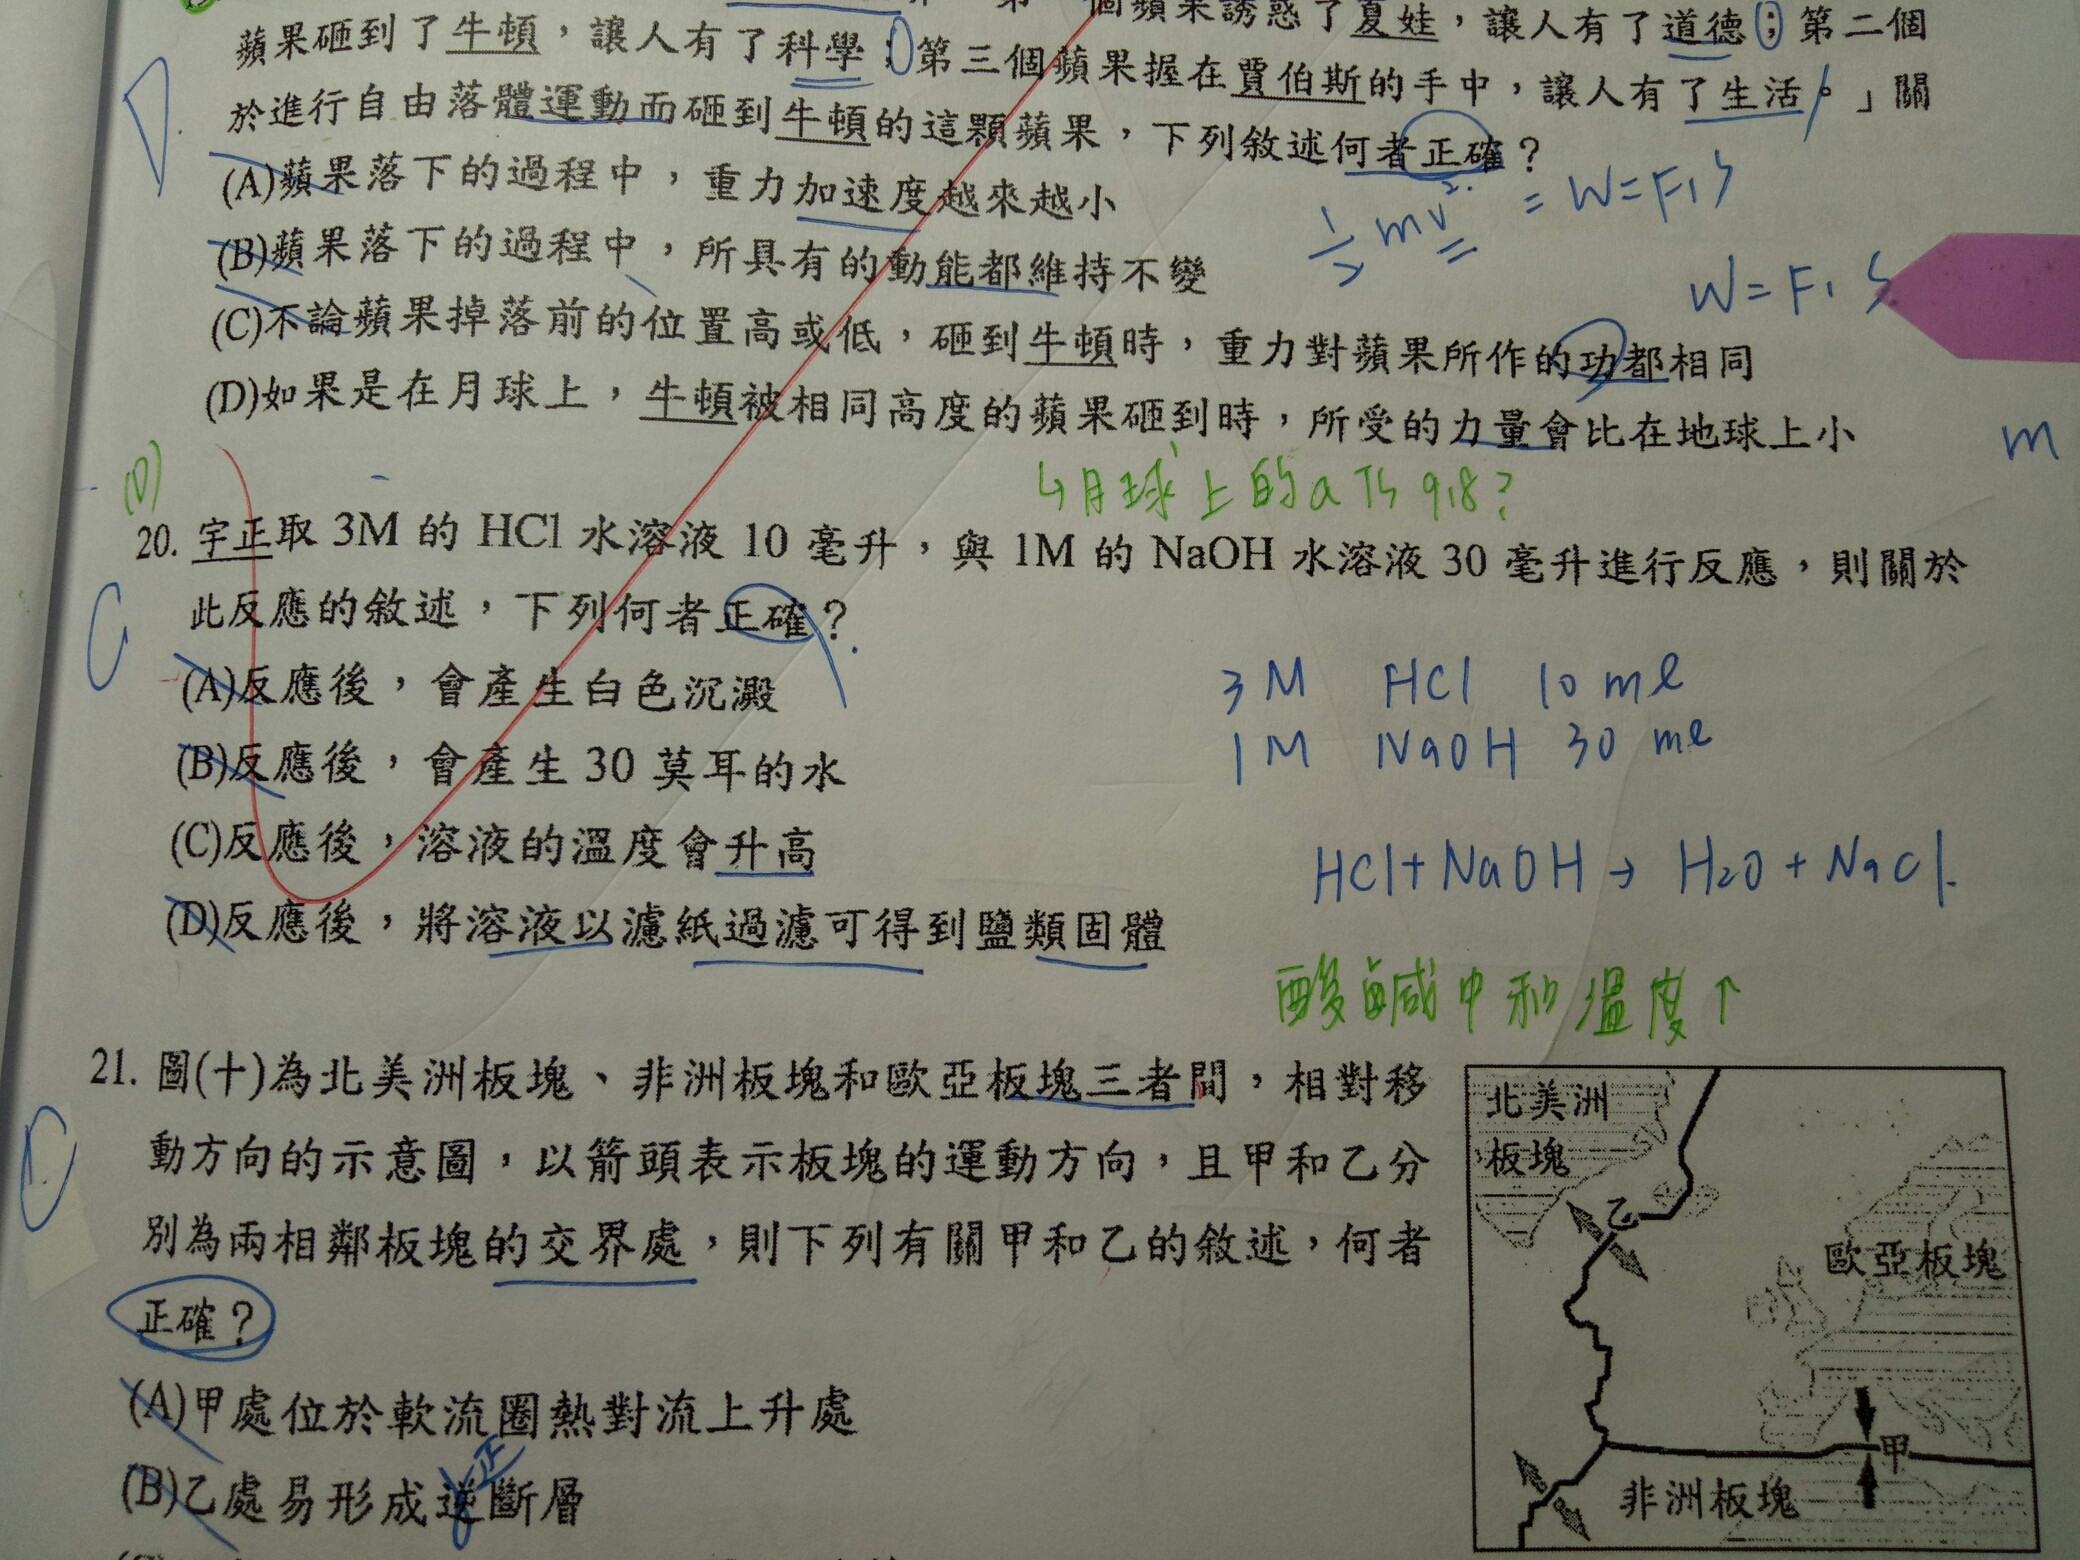 個蘋果誘惑了夏娃，讓人有了道德；第二個
蘋果砸到了牛頓，讓人有了科學；第三個蘋果握在賈伯斯的手中，讓人有了生活。」關
於進行自由落體運動而砸到牛頓的這顆蘋果，下列敘述何者正確？
(A)蘋果落下的過程中，重力加速度越來越小
½mv² = W=F,S
(B)蘋果落下的過程中，所具有的動能都維持不變
W=F,S
(C)不論蘋果掉落前的位置高或低，砸到牛頓時，重力對蘋果所作的功都相同
(D)如果是在月球上，牛頓被相同高度的蘋果砸到時，所受的力量會比在地球上小
m
(D)
↳月球上的a 9.8？
20. 宇正取 3M 的 HCl 水溶液 10 毫升，與 1M 的 NaOH 水溶液 30 毫升進行反應，則關於
此反應的敘述，下列何者正確？
C
(A)反應後，會產生白色沉澱
3M HCl 10 ml
(B)反應後，會產生 30 莫耳的水
1M NaOH 30 ml
(C)反應後，溶液的溫度會升高
HCl+NaOH→ H2O+NaCl
(D)反應後，將溶液以濾紙過濾可得到鹽類固體
酸鹹中和溫度↑
21. 圖(十)為北美洲板塊、非洲板塊和歐亞板塊三者間，相對移
動方向的示意圖，以箭頭表示板塊的運動方向，且甲和乙分
別為兩相鄰板塊的交界處，則下列有關甲和乙的敘述，何者
正確？
(A)甲處位於軟流圈熱對流上升處
正
(B)乙處易形成逆斷層
北美洲
板塊
乙
歐亞板塊
甲
非洲板塊